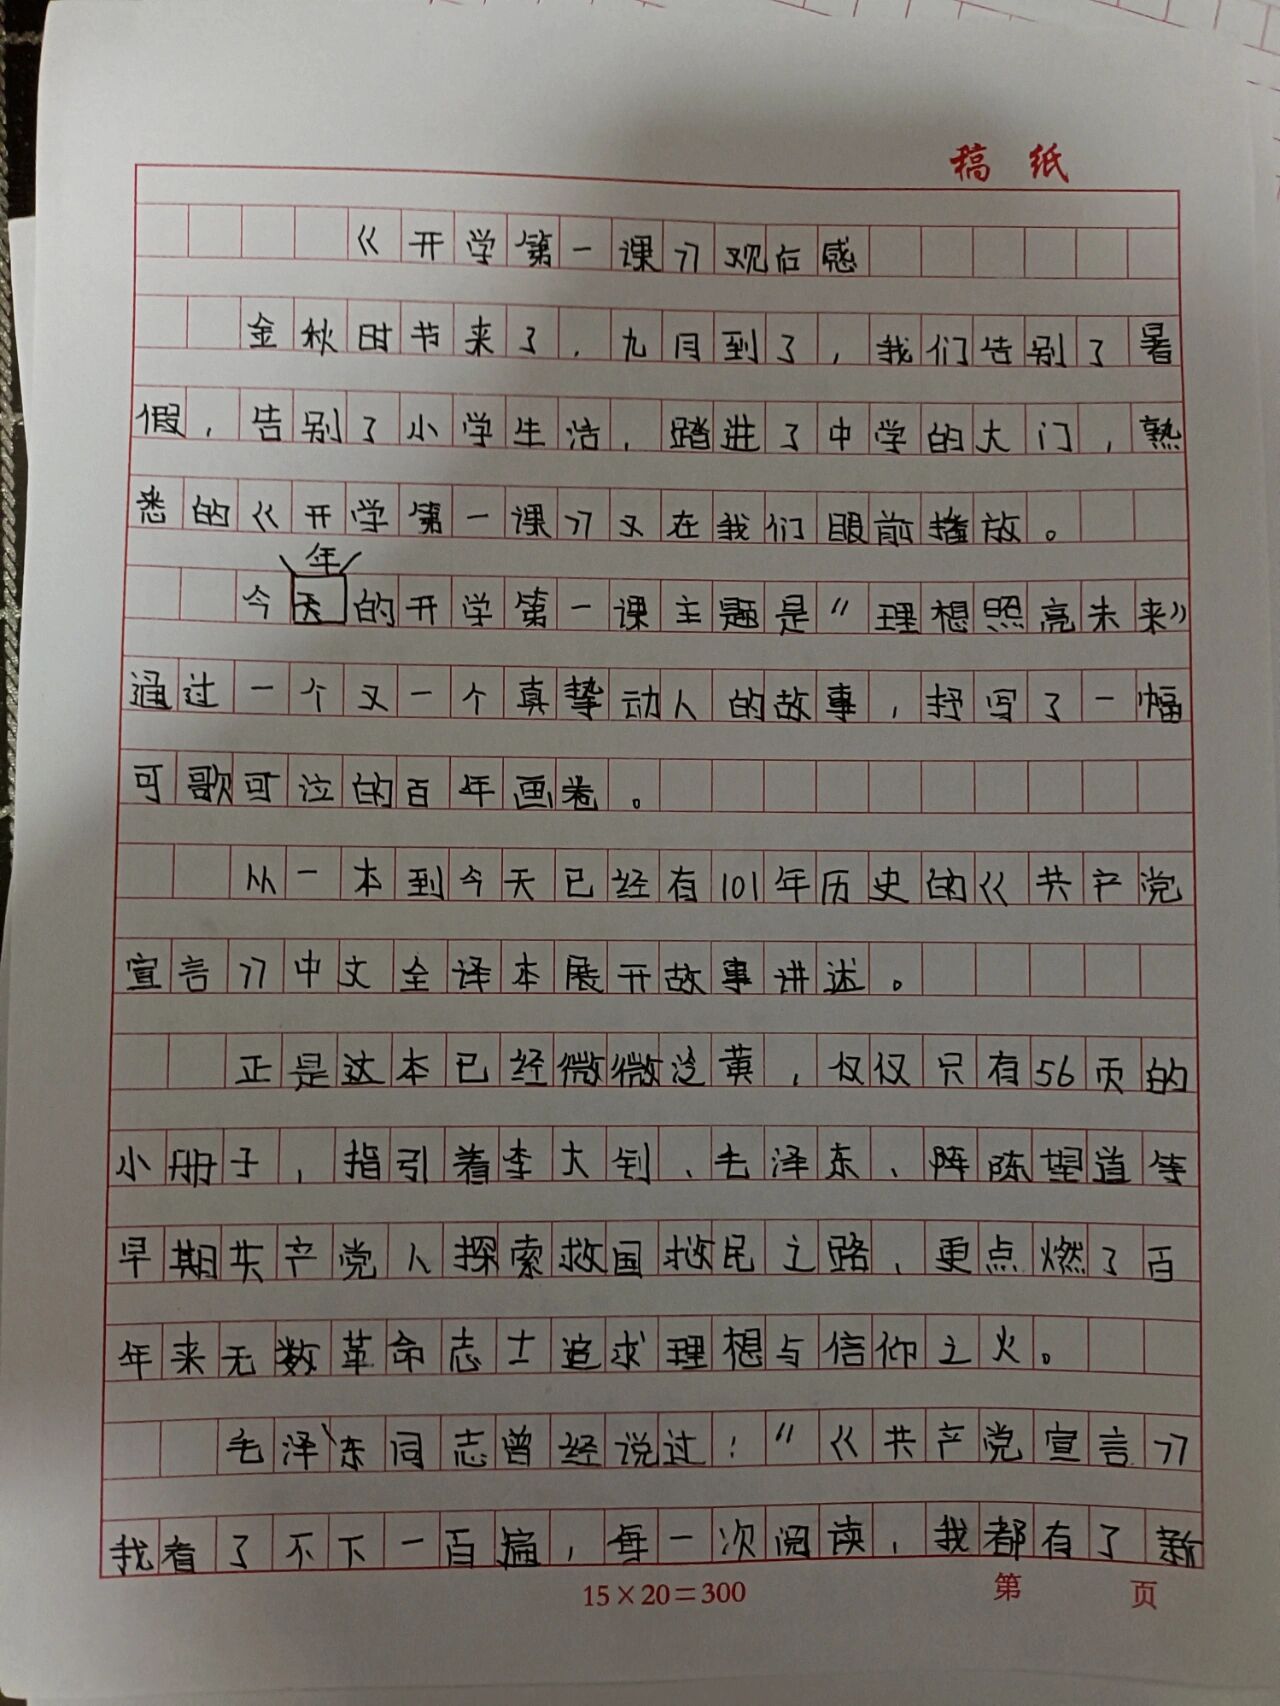 稿 纸
《开学第一课》观后感
金秋时节来了，九月到了，我们告别了暑
假，告别了小学生活，踏进了中学的大门，熟
悉的《开学第一课》又在我们眼前播放。
年
今天的开学第一课主题是“理想照亮未来”
通过一个又一个真挚动人的故事，抒写了一幅
可歌可泣的百年画卷。
从一本到今天已经有101年历史的《共产党
宣言》中文全译本展开故事讲述。
正是这本已经微微泛黄，仅仅只有56页的
小册子，指引着李大钊、毛泽东、陈望道等
早期共产党人探索救国救民之路，更点燃了百
年来无数革命志士追求理想与信仰之火。
毛泽东同志曾经说过：“《共产党宣言》
我看了不下一百遍，每一次阅读，我都有了新
15×20=300 第 页